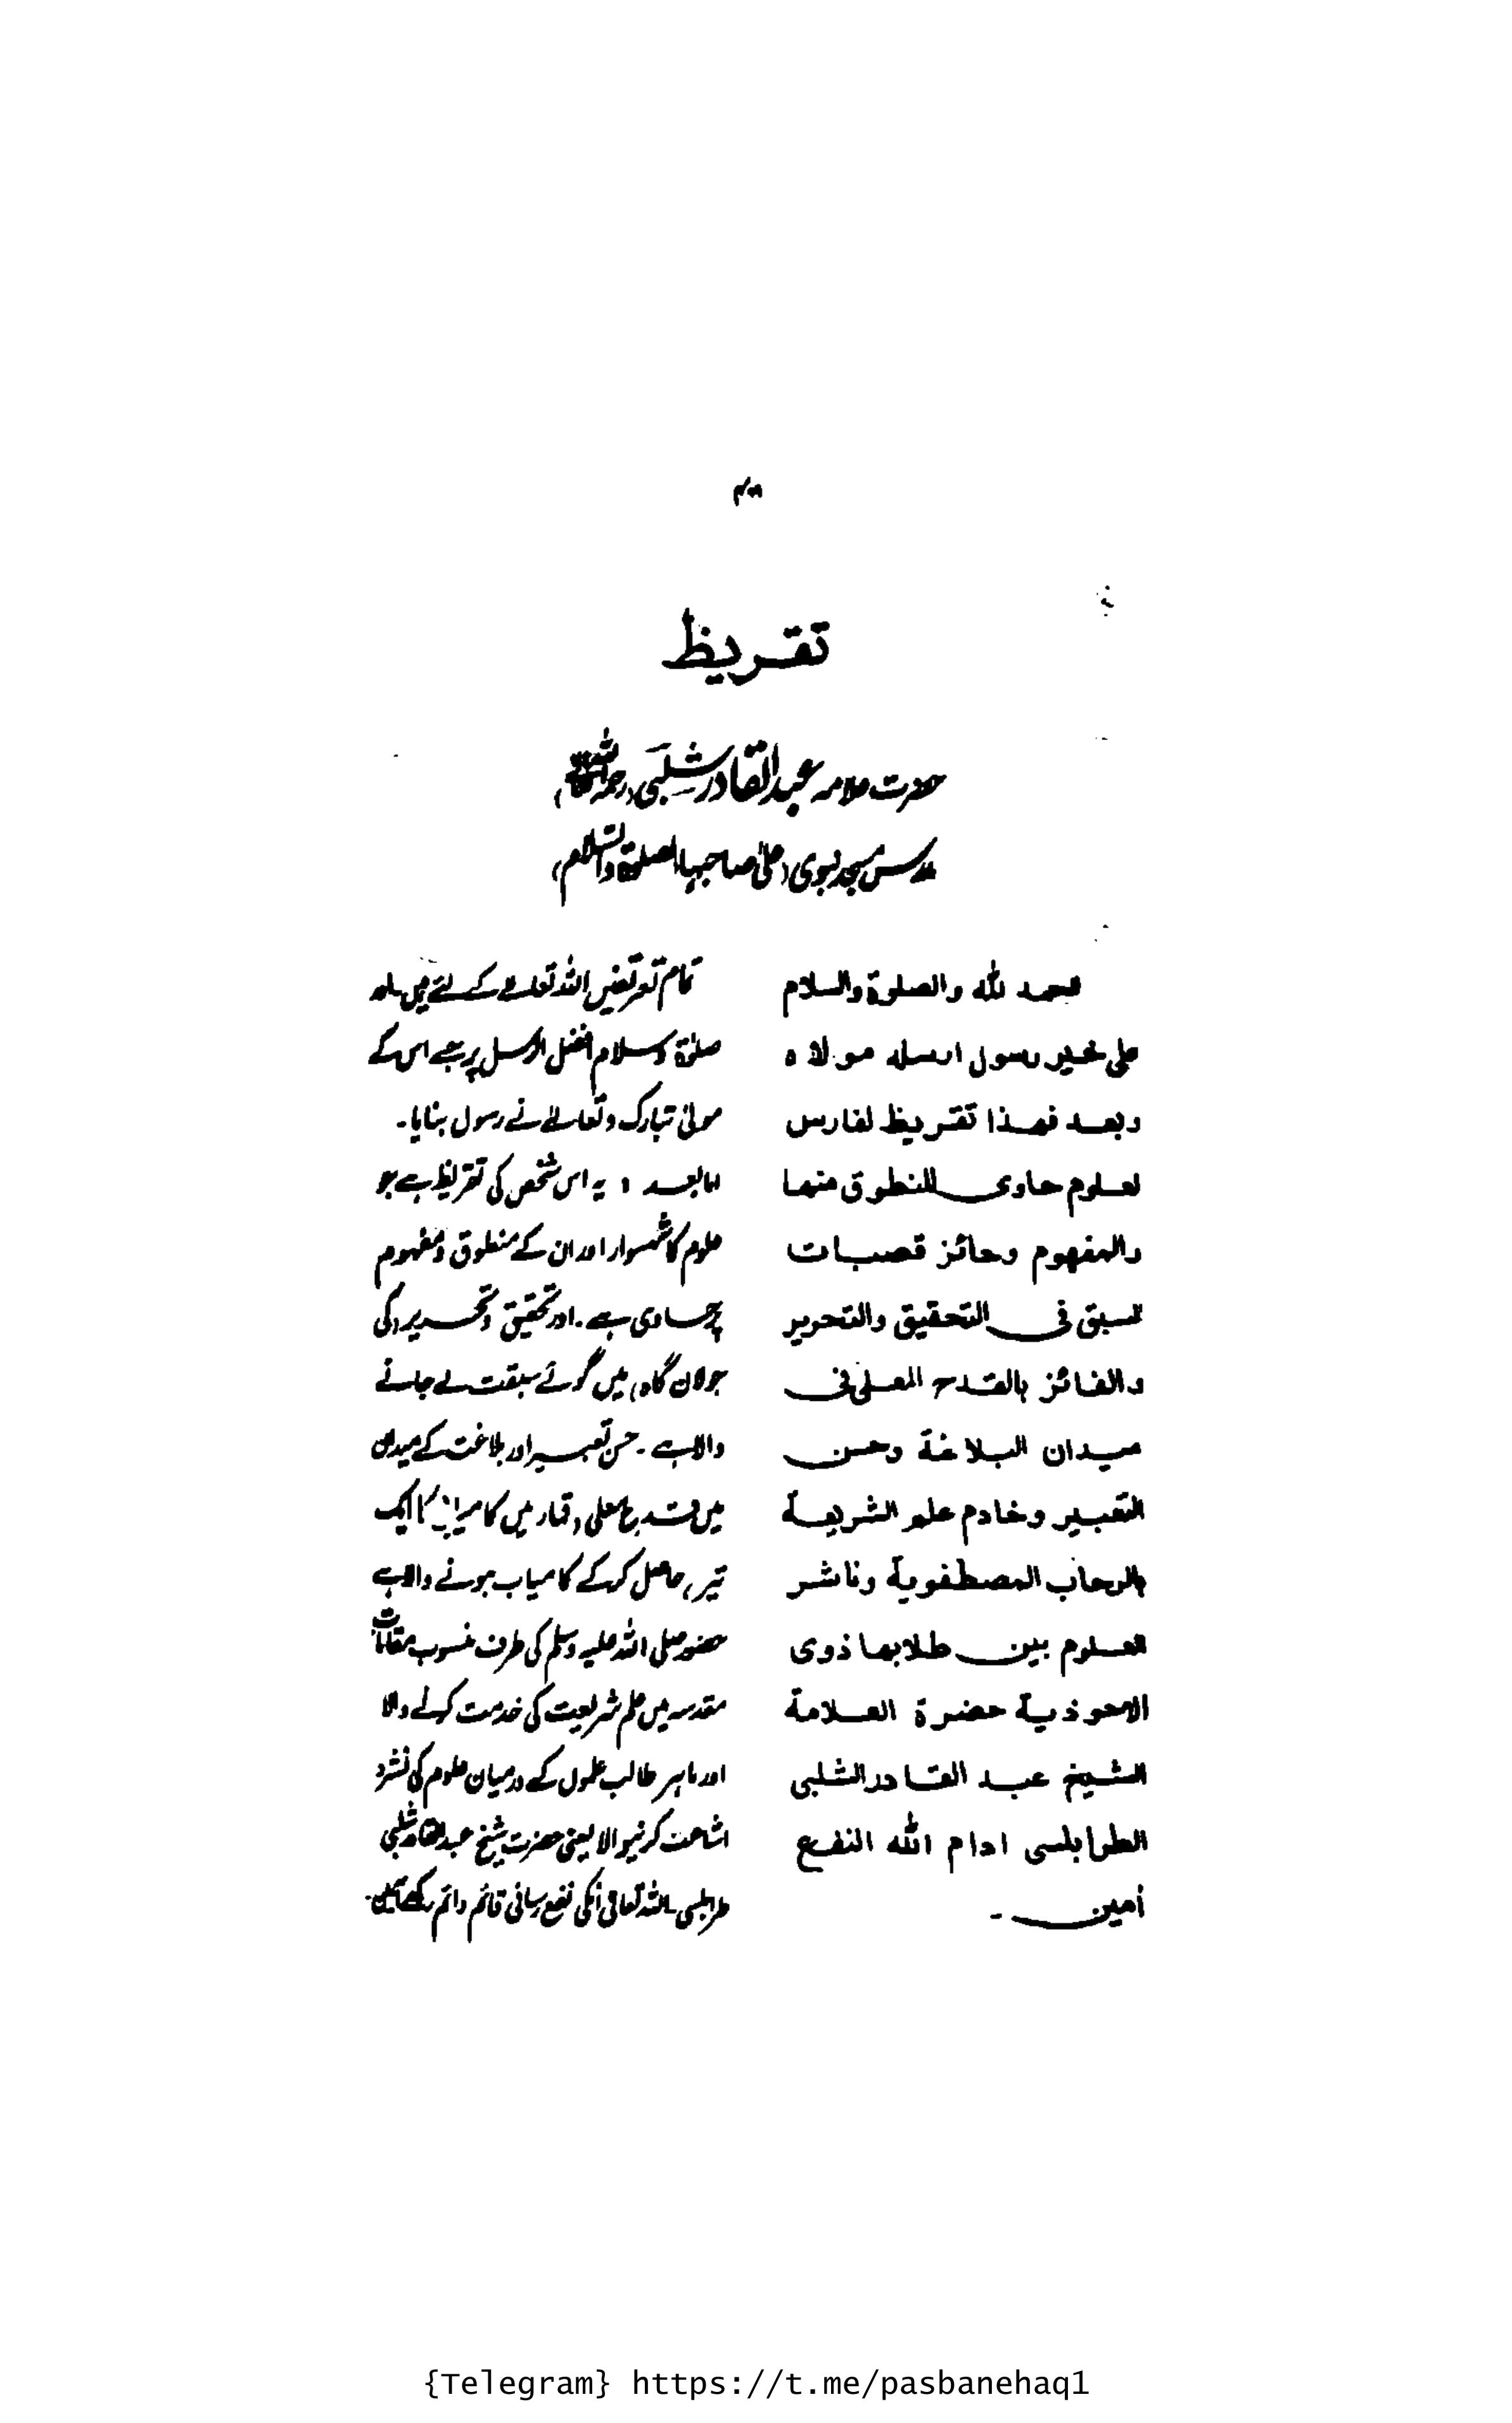 تقريظ
حضرت علامہ عبدالقادر شلبی (رحمہ اللہ)
مدرس مسجد نبوی (علیٰ صاحبہا الصلوٰۃ والسلام)
الحمد لله والصلوة والسلام
على خير رسول ارسله مولاه
وبعد فهذا تقريظ لفارس
العلوم حاوى المنطوق منها
والمفهوم وحائز قصبات
السبق فى التحقيق والتحرير
والفائز بالقدح المعلى فى
ميدان البلاغة وحسن
التعبير وخادم علم الشريعة
بالرحاب المصطفوية وناشر
العلوم بين طلابها ذوى
الاحوذية حضرة العلامة
الشيخ عبد القادر الشلبى
الطرابلسى ادام الله النفع
أمين ـ
تمام تعریفیں اللہ تعالےٰ کے لئے ہیں اور
صلوٰۃ وسلام افضل الرسل پر جسے اس کے
مولیٰ تبارک وتعالےٰ نے رسول بنایا۔
امابعد ، یہ اس شخص کی تقریظ ہے جو
علوم کا شہسوار اور ان کے منطوق ومفہوم
پر حاوی ہے۔ اور تحقیق وتحریر (کی
جولان گاہ) میں گوئے سبقت لے جانے
والا ہے۔ حسن تعبیر اور بلاغت کے میدان
میں قدح معلی (قمار میں کامیابی کا ایک
تیر) حاصل کرکے کامیاب ہونے والا ہے
حضور صلی اللہ علیہ وسلم کی طرف منسوب مقامات
مقدسہ میں علم شریعت کی خدمت کرنے والا
اور ماہر طالب علموں کے درمیان علوم کی نشرو
اشاعت کرنیوالا یعنی حضرت شیخ عبدالقادر شلبی
طرابلسی اللہ تعالیٰ انکی نفع رسانی قائم دائم رکھے آمین۔
{Telegram} https://t.me/pasbanehaq1